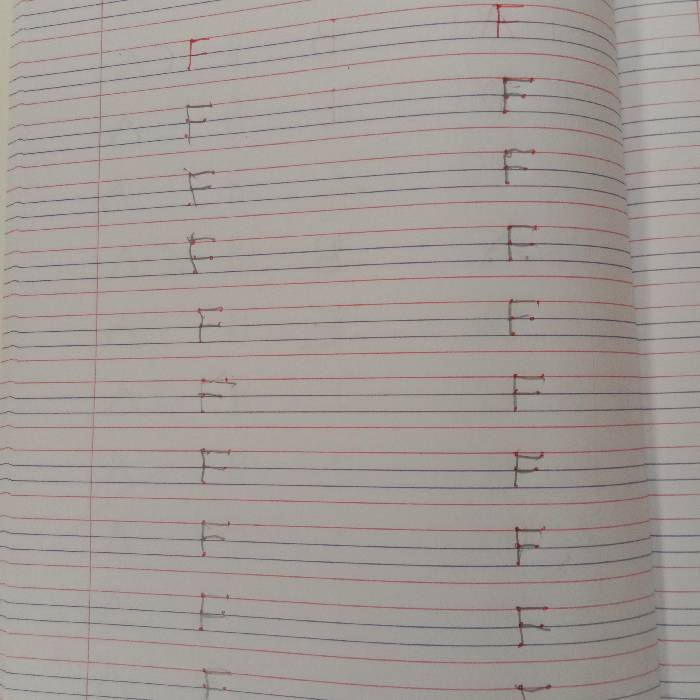 F F
F F
F F
F F
F F
F F
F F
F F
F F
F F